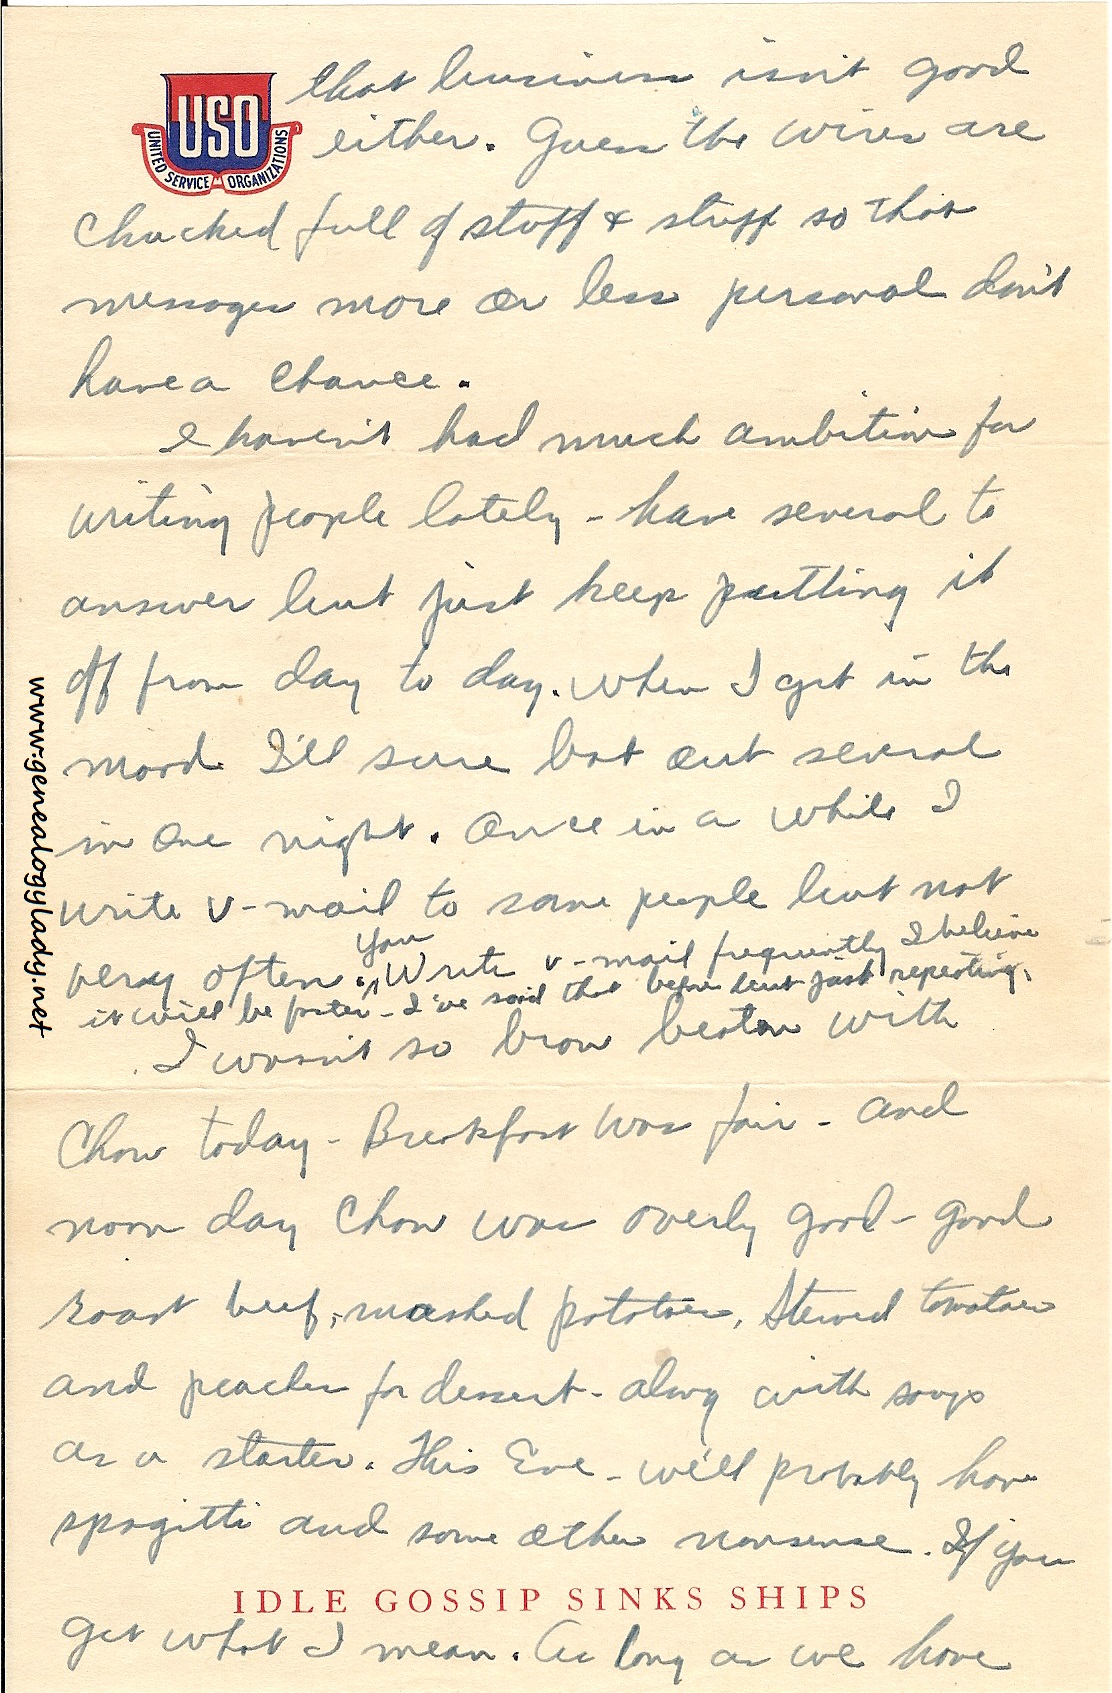 USO
UNITED SERVICE ORGANIZATIONS
that business isn't good
either. Guess the wires are
chucked full of stuff & stuff so that
messages more or less personal don't
have a chance.
I haven't had much ambition for
writing people lately - have several to
answer but just keep putting it
off from day to day. When I get in the
mood I'll sure bat out several
in one night. Once in a while I
write V-mail to some people but not
very often. You Write v-mail frequently I believe
it will be faster - I've said that before but just repeating.
I wasn't so brow beaten with
Chow today - Breakfast was fair - and
noon day Chow was overly good - good
roast beef, mashed potatoes, Stewed tomatoes
and peaches for dessert - along with soup
as a starter. This Eve - we'll probably have
spagitti and some other nonsense. If you
IDLE GOSSIP SINKS SHIPS
get what I mean. As long as we have
www.genealogylady.net